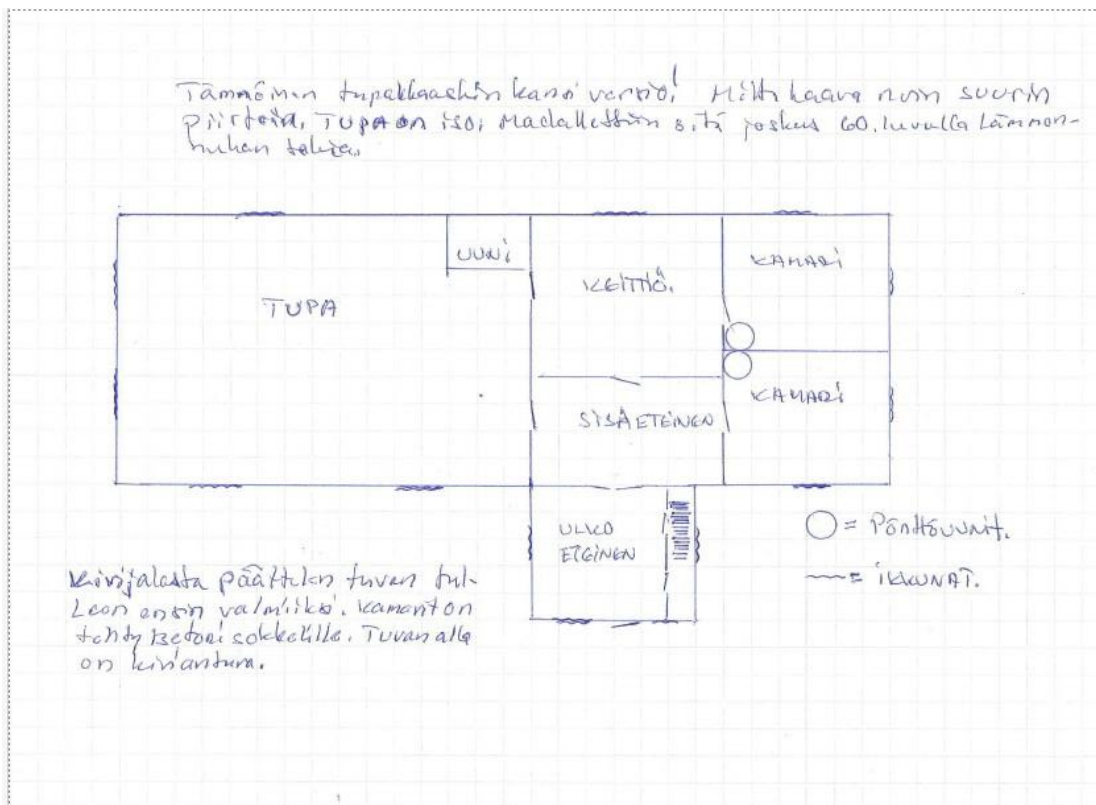 Tämmöinen tupakkaaskin kansi versio! Mitta kaava noin suurin
piirtein. TUPA on iso, Madallettiin sitä joskus 60. luvulla Lämmön-
hukan takia.
UUNI
KEITTIÖ.
KAMARI
TUPA
KAMARI
SISÄETEINEN
ULKO
ETEINEN
= PÖNTTÖUUNIT.
= IKKUNAT.
Kivijalasta päätellen tuvan tul-
Leen ensin valmiiksi. Kamarit on
tehty Betoni sokkelille. Tuvan alla
on kiviantura.